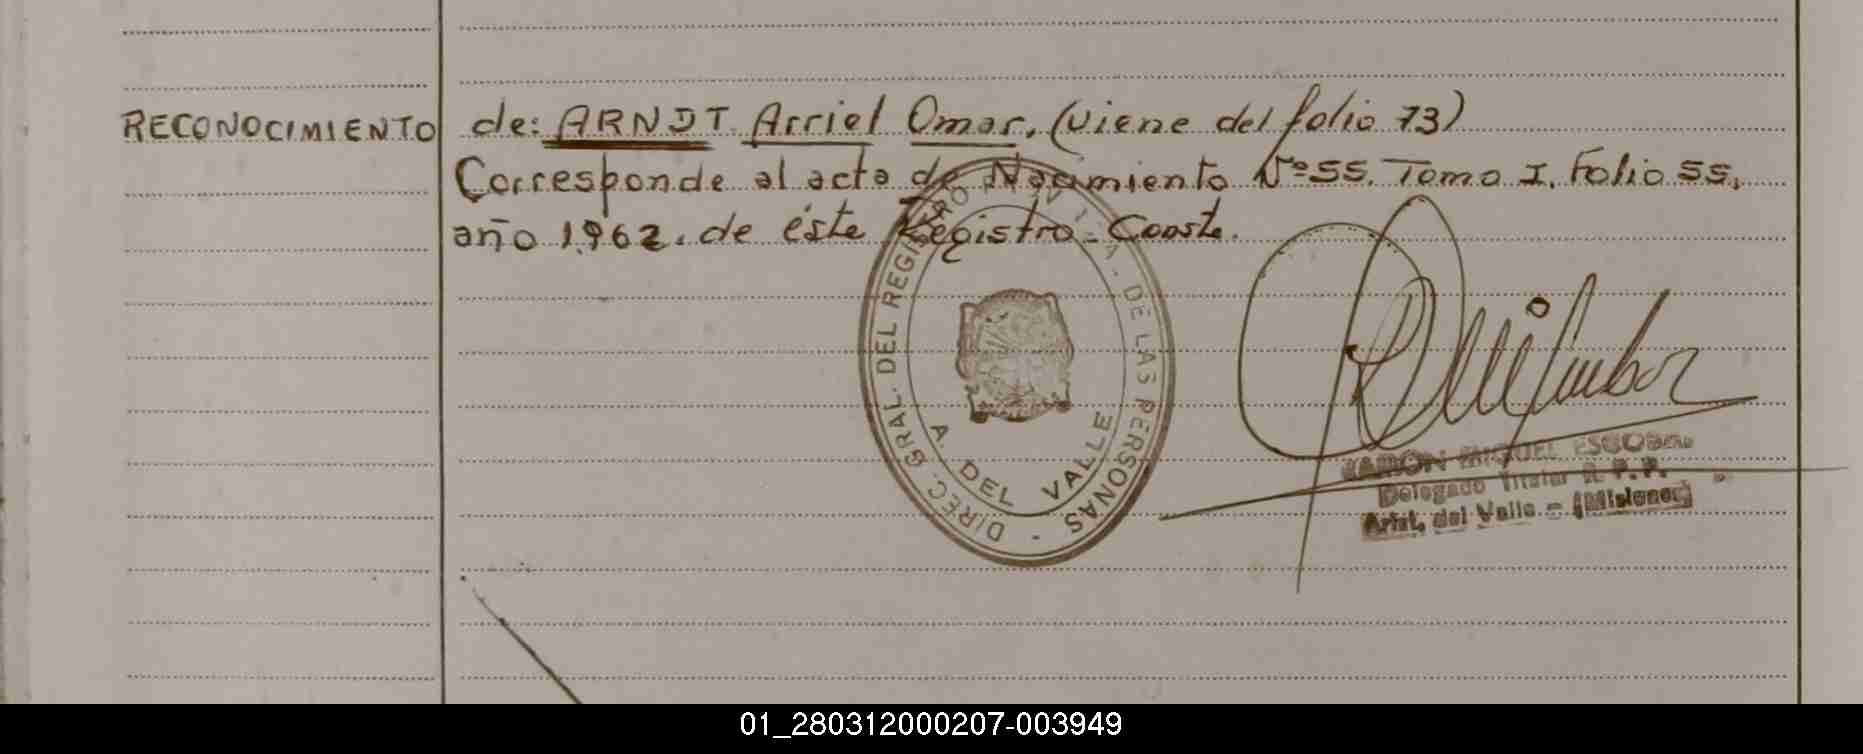 RECONOCIMIENTO de: ARNDT Arriel Omar. (viene del folio 73)
Corresponde al acta de Nacimiento Nº 55. Tomo I. Folio 55,
año 1962. de éste Registro - Conste.
DIREC. GRAL. DEL REGISTRO DE LAS PERSONAS -
A. DEL VALLE
RAMON MIGUEL ESCOBAR
Delegado Titular R. P. P.
Arist. del Valle - (Misiones)
01_280312000207-003949